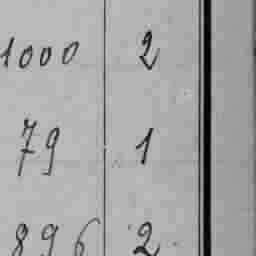 1000 2
79 1
896 2